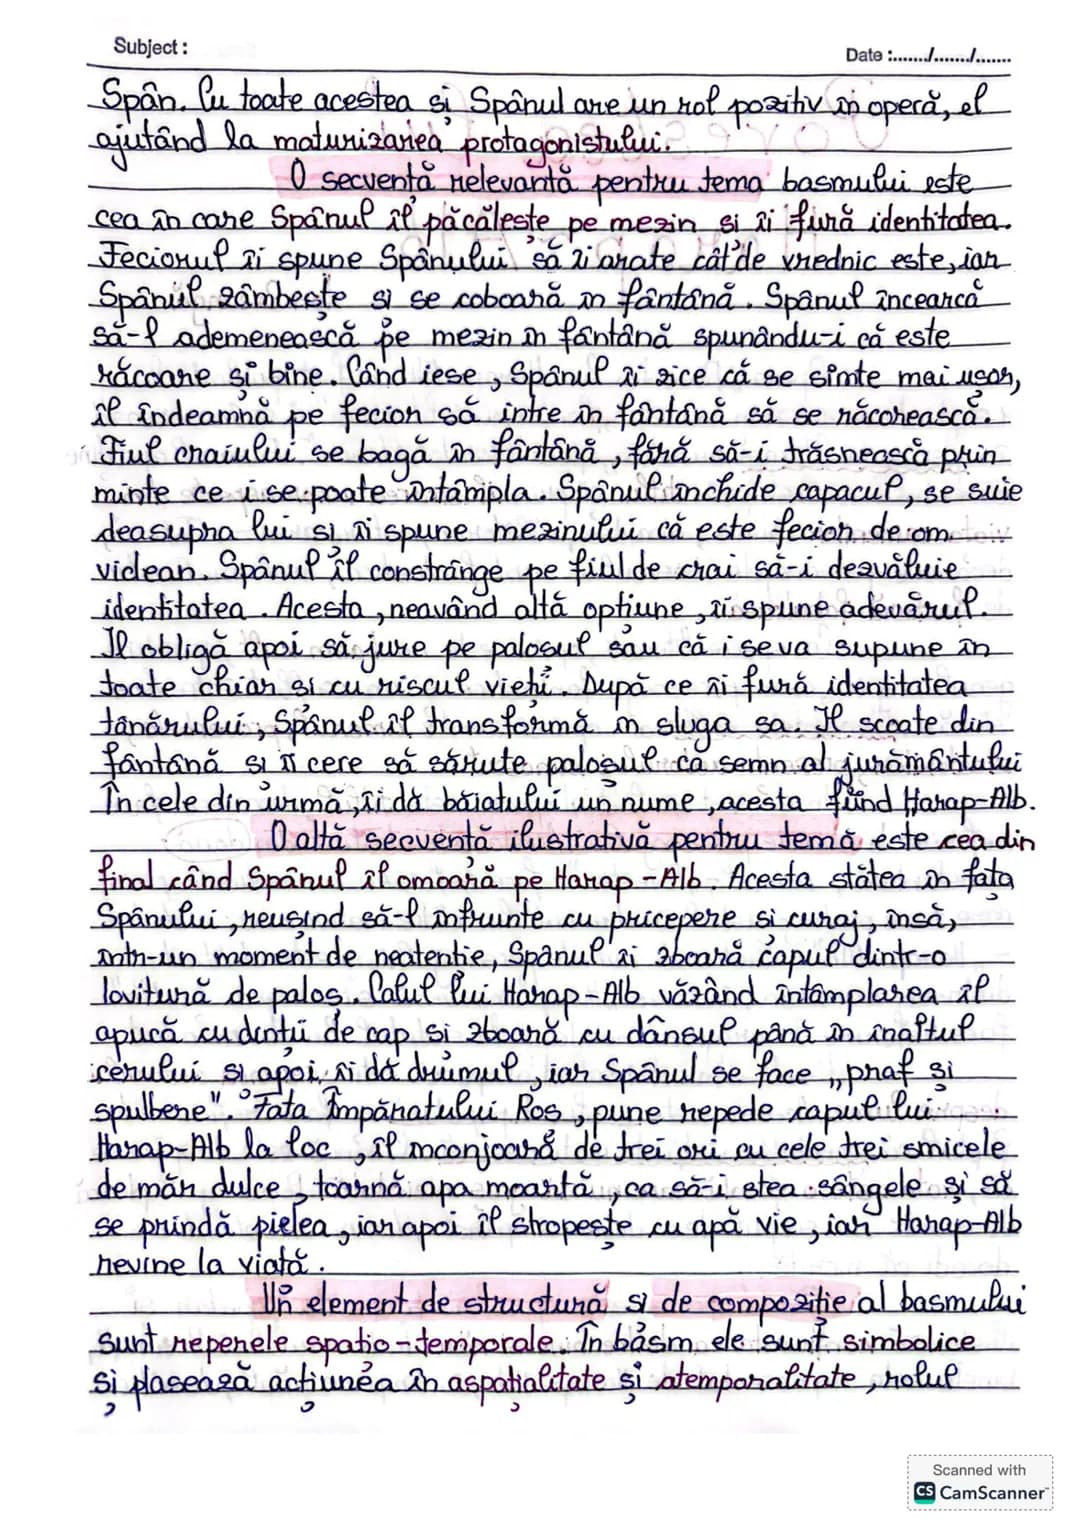 Subject :
Date :......./......./.......
Spân. Cu toate acestea și Spânul are un rol pozitiv în operă, el
ajutând la maturizarea protagonistului.
O secvență relevantă pentru tema basmului este
cea în care Spânul îl păcălește pe mezin și îi fură identitatea.
Feciorul îi spune Spânului să îi arate cât de vrednic este, iar
Spânul zâmbește și se coboară în fântână. Spânul încearcă
să-l ademenească pe mezin în fântână spunându-i că este
răcoare și bine. Când iese, Spânul îi zice că se simte mai ușor,
îl îndeamnă pe fecior să intre în fântână să se răcorească.
Fiul craiului se bagă în fântână, fără să-i trăsnească prin
minte ce i se poate întâmpla. Spânul închide capacul, se suie
deasupra lui și îi spune mezinului că este fecior de om
viclean. Spânul îl constrânge pe fiul de crai să-i dezvăluie
identitatea. Acesta, neavând altă opțiune, îi spune adevărul.
Îl obligă apoi să jure pe paloșul său că i se va supune în
toate chiar și cu riscul vieții. După ce îi fură identitatea
tânărului, Spânul îl transformă în sluga sa. Îl scoate din
fântână și îi cere să sărute paloșul ca semn al jurământului
În cele din urmă, îi dă băiatului un nume, acesta fiind Harap-Alb.
O altă secvență ilustrativă pentru temă este cea din
final când Spânul îl omoară pe Harap-Alb. Acesta stătea în fața
Spânului, reușind să-l înfrunte cu pricepere și curaj, însă,
într-un moment de neatenție, Spânul îi zboară capul dintr-o
lovitură de paloș. Calul lui Harap-Alb văzând întâmplarea îl
apucă cu dinții de cap și zboară cu dânsul până în înaltul
cerului și apoi îi dă drumul, iar Spânul se face „praf și
spulbere". Fata Împăratului Roș, pune repede capul lui
Harap-Alb la loc, îl înconjoară de trei ori cu cele trei smicele
de măr dulce, toarnă apa moartă, ca să-i stea sângele și să
se prindă pielea, iar apoi îl stropește cu apă vie, iar Harap-Alb
revine la viață.
Un element de structură și de compoziție al basmului
sunt reperele spațio-temporale. În basm ele sunt simbolice
și plasează acțiunea în aspațialitate și atemporalitate, rolul
Scanned with
CS CamScanner